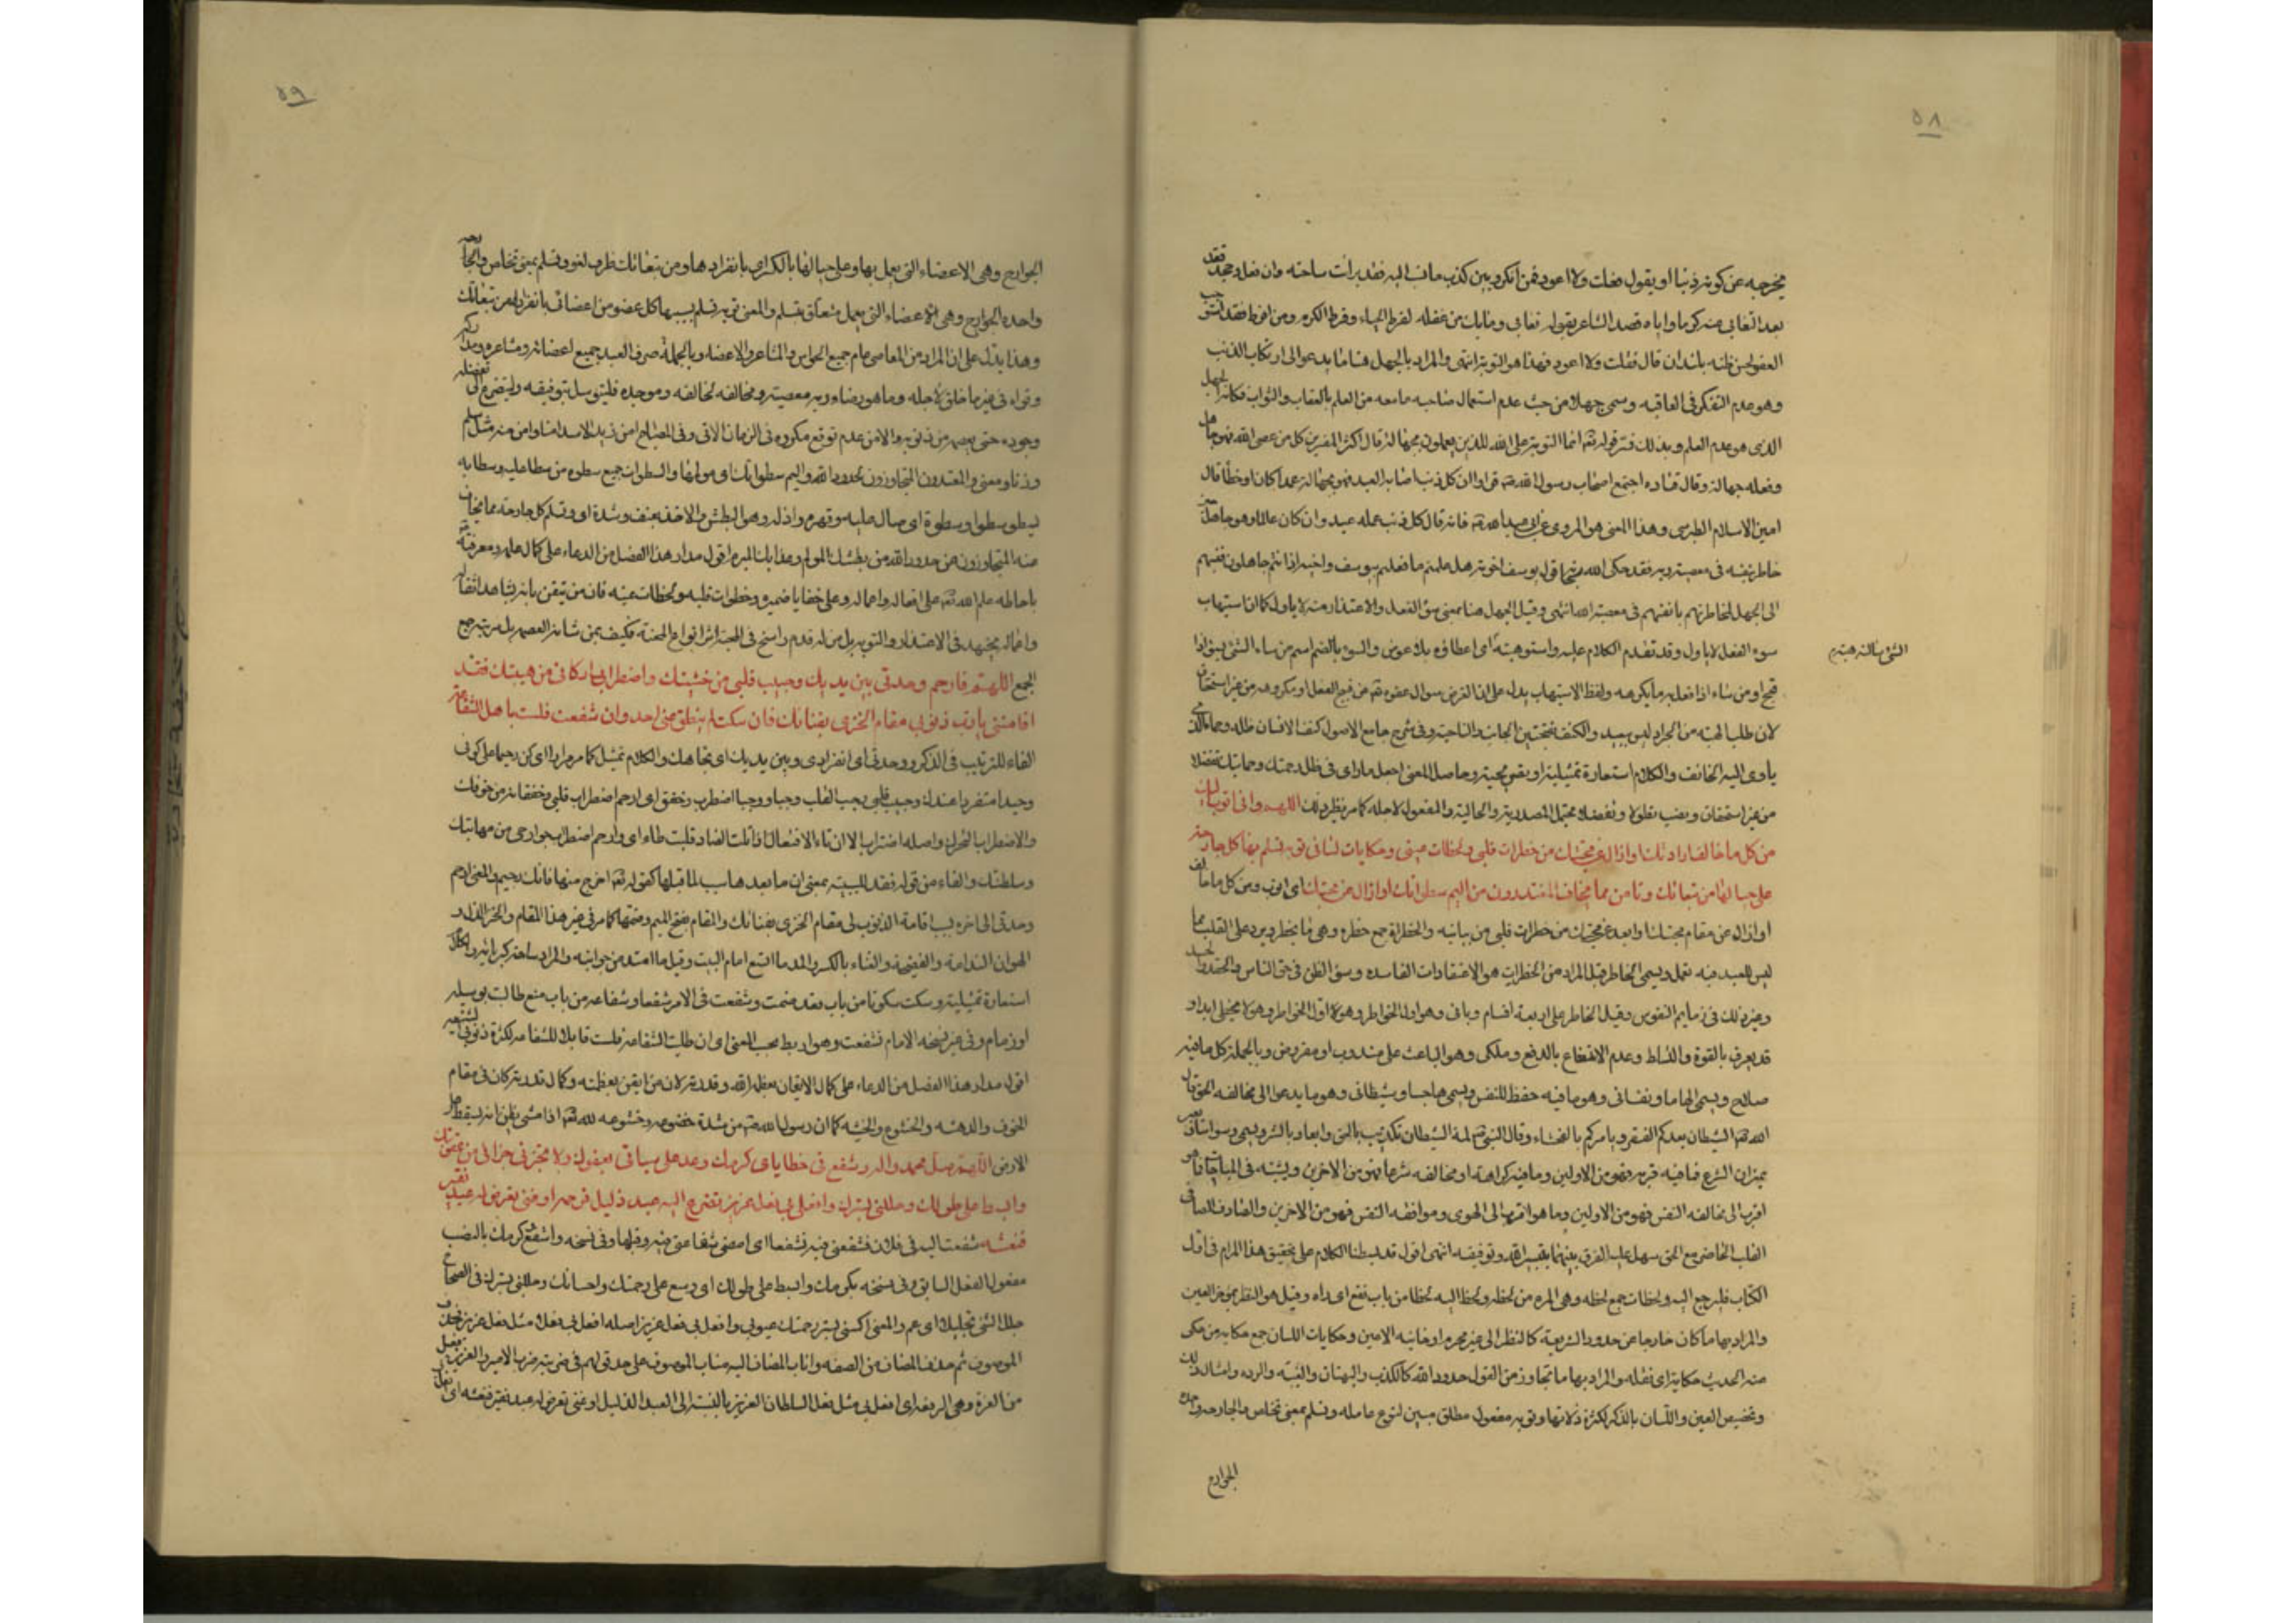 ٥٨
يخرجه عن كونه ذنبا او يقول فعلت ولا اعود فمن انكر وبين كذب ما نسب اليه فقد برأت ساحته وان فعل وجحد فقد
العفو لحسن ظنه بأن قال فعلت ولا اعود فهذا هو التوبة انتهى والمراد بالجهل هنا ما يدعو الى ارتكاب الذنب
وهو عدم التفكر فى العاقبه وسمى جهلا من حيث عدم استعمال صاحبه ما معه من العلم بالعقاب والثواب فكانه الجهل
الذى هو عدم العلم وبذلك فسر قوله تعه انما التوبة على الله للذين يعملون بجهالة قال اكثر المفسرين كل من عصى الله فهو جاهل
وفعله جهالة وقال قتاده اجتمع اصحاب رسول الله فراوا ان كل ذنب اصابه العبد فهو بجهالة عمدا كان او خطأ قال
امين الاسلام الطبرسى وهذا المعنى هو المروى عن ابى عبد الله فانه قال كل ذنب عمله عبد وان كان عالما فهو جاهل حين
خاطر بنفسه فى معصية ربه فقد حكى الله قول يوسف لاخوته هل علمتم ما فعلتم بيوسف واخيه اذ انتم جاهلون فنسبهم
الى الجهل لمخاطرتهم بانفسهم فى معصية الله انتهى وقيل الجهل هنا بمعنى سوء الفعل والاعتذار منه لا ياول كما ان استيهاب
سوء الفعل لا ياول وقد تقدم الكلام عليه واستوهبته اى اعطاؤه بلا عوض والسوء بالضم اسم من ساء الشئ يسوء اذا
الشئ سالته هبته
قبح او من ساءه اذا فعل به ما يكرهه ولفظ الاستيهاب يدل على ان الغرض سوال عفوه تعه عن قبيح الفعل او مكروهه من غير استحقاق
لان طلب الهبة من الجواد ليس ببعيد والكنف بفتحتين الجانب والناحية وفى شرح جامع الاصول كنف الانسان ظله وحماه الذى
ياوى اليه الخائف والكلام استعارة تمثيلية او وحاصل المعنى اجعل ماواى فى ظل رحمتك وحمايتك تفضلا
من غير استحقاق ونصب تطولا وتفضلا محتمل المصدرية والحالية والمفعول لاجله كما مر نظير ذلك اللهم وانى اتوب اليك
من كل ما خالف ارادتك او زال عن محبتك من خطرات قلبى ولحظات عينى وحكايات لسانى توبة تسلم بها كل جارحة
على حيالها من تبعاتك وتامن مما يخاف المعتدون من اليم سطواتك اى اتوب من كل ما خالف
او زال عن مقام محبتك او ابعد عن محبتك من خطرات قلبى من بيانيه والخطرات جمع خطره وهى ما يخطر ويرد على القلب مما
ليس للعبد فيه تعمل ويسمى الخاطر قيل المراد من الخطرات هو الاعتقادات الفاسده وسوء الظن فى حق الناس والحقد والحسد
وغير ذلك من ذمايم النفوس وقيل الخاطر على اربعة اقسام ربانى وهو اول الخواطر وهو لا يخطى ابدا و
قد يعرف بالقوة والتسلط وعدم الاندفاع بالدفع وملكى وهو الباعث على مندوب او مفروض وبالجملة كل ما فيه
صلاح ويسمى الهاما ونفسانى وهو ما فيه حفظ للنفس ويسمى هاجسا وشيطانى وهو ما يدعو الى مخالفه الحق قال
الله تعه الشيطان يعدكم الفقر ويامركم بالفحشاء وقال النبى لمة الشيطان تكذيب بالحق وايعاد بالشر ويسمى وسواسا ويعبر
بميزان الشرع فما فيه قربة فهو من الاولين وما فيه كراهة او مخالفه شرعا فهو من الاخرين ويشتبه فى المباحات فما هو
اقرب الى مخالفه النفس فهو من الاولين وما هو اقرب الى الهوى وموافقه النفس فهو من الاخرين والصادق الصافى
القلب الحاضر مع الحق سهل عليه الفرق بينهما بتيسير الله وتوفيقه انتهى اقول قد بسطنا الكلام على تحقيق هذا المرام فى اول
الكتاب فليرجع اليه ولحظات جمع لحظه وهى المره من لحظه ولحظ اليه لحظا من باب نفع اى راه وقيل هو النظر بمؤخر العين
والمراد بها ما كان خارجا عن حدود الشريعة كالنظر الى غير محرم او خائنة الاعين وحكايات اللسان جمع حكايه من حكى
عنه الحديث حكاية اى نقله والمراد بها ما تجاوز من القول حدود الله كالكذب والبهتان والغيبة والرده وامثال ذلك
وتخصيص العين واللسان بالذكر لكثرة زلاتها وتوبه مفعول مطلق مبين لنوع عامله وتسلم بمعنى تخلص والجارحه واحده
الجوارح
٥٩
الجوارح وهى الاعضاء التى يعمل بها وعلى حيالها بالكسر اى بانفرادها ومن تبعاتك ظرف لغو وتسلم بمعنى تخلص والجارحه
واحده الجوارح وهى الاعضاء التى يعمل متعلق بتسلم والمعنى توبه تسلم بسببها كل عضو من اعضائى بانفراده من تبعاتك
وهذا يدل على ان المراد من المعاصى عام جميع الحواس والمشاعر والاعضاء وبالجملة صرف العبد جميع اعضائه ومشاعره ومداركه
وقواه فى غير ما خلق لاجله وما هو رضاء ربه معصية ومخالفه لخالقه وموجده فليتوسل بتوفيقه وليتضرع الى
وجوده حتى يعصمه من ذنوبه والامن عدم توقع مكروه فى الزمان الاتى وفى المصباح امن زيد الاسد امنا وامن منه مثل سلم
وزنا ومعنى والمعتدون المتجاوزون لحدود الله واليم سطواتك اى مولمها والسطوات جمع سطوه من سطا عليه وسطا به
يسطو سطوا وسطوة اى صال عليه وقهره واذله وهو البطش والاخذ بعنف وشدة اى وتسلم كل جارحة مما يخاف
منه المتجاوزون عن حدود الله من بطشك المولم وعذابك المبرم اقول مدار هذا الفصل من الدعاء على كمال علمه ومعرفته
باحاطه علم الله تعه على افعاله واعماله وعلى خفايا ضميره وخطرات قلبه ولحظات عينه فان من تيقن بانه يشاهد افعاله
واعماله يجتهد فى الاعتذار والتوبه بل من له قدم راسخ فى المحبة اثر انواع المحنة فكيف بمن شانه العصمه بل مرتبته جمع
الجمع اللهم فارحم وحدتى بين يديك ووجيب قلبى من خشيتك واضطراب اركانى من هيبتك فقد
اقامتنى يا رب ذنوبى مقام الخزى بفنائك فان سكت لم ينطق عنى احد وان شفعت فلست باهل الشفاعة
الفاء للترتيب فى الذكر ووحدتى اى انفرادى وبين يديك اى تجاهك والكلام تمثيل كما مر مرارا اى كن رحيما على كونى
وحيدا متفردا عندك ووجيب قلبى وجب القلب وجبا ووجيبا اضطرب وخفق اى ارحم اضطراب قلبى وخفقانه من خوفك
والاضطراب التحرك واصله اضتراب الا ان تاء الافتعال اذا تلت الضاد قلبت طاء اى وارحم اضطراب جوارحى من مهابتك
وسلطنتك والفاء من قوله فقد للسببيه بمعنى ان ما بعدها سبب لما قبلها كقوله تعه اخرج منها فانك رجيم والمعنى ارحم
وحدتى الى اخره بسبب اقامة الذنوب لى مقام الخزى بفنائك والمقام بفتح الميم وضمها كما مر فى غير هذا المقام والخزى الذل و
الهوان الندامة والفضيحة والفناء بالكسر والمد ما اتسع امام البيت وقيل ما امتد من جوانبه والمراد ساحة كبريائه والكلام
استعارة تمثيلية وسكت سكوتا من باب قعد صمت وشفعت فى الامر شفعا وشفاعه من باب منع طالبت بوسيلة
او ذمام وفى غير نسخه الامام تشفعت وهو اربط بحسب المعنى اى ان طلبت الشفاعة فلست قابلا للشفاعه لكثرة ذنوبى
اقول مدار هذا الفصل من الدعاء على كمال الايقان بعظمه الله وقدرته لان من ايقن بعظمته وكمال قدرته كان فى مقام
الخوف والدهشه والخشوع والخشيه كما ان رسول الله من شدة خضوعه وخشوعه لله تعه اذا مشى يظن انه يسقط على
الارض اللهم صل على محمد واله وشفع فى خطاياى كرمك وعد على سيئاتى بعفوك ولا تجزنى جزائى من عقوبتك
وابسط على طولك وجللنى بسترك وافعل بى فعل عزيز تضرع اليه عبد ذليل فرحمه او غنى تعرض له عبد فقير
فنعشه شفعت اليه فى فلان فشفعنى فيه تشفيعا اى امضى شفاعتى فيه وقبلها وفى نسخه واشفع كرمك بالنصب
مفعول الفعل السابق وفى نسخه بكرمك وابسط على طولك اى وسع على رحمتك واحسانك وجللنى بسترك فى الصحاح
جلل الشئ تجليلا اى عم والمعنى اكسنى بستر رحمتك عيوبى وافعل بى فعل عزيز اصله افعل بى فعلا مثل فعل عزيز فحذف
الموصوف ثم حذف المضاف من الصفه واناب المضاف اليه مناب الموصوف على حد قولهم فى ضربته ضرب الامير والعزيز فعيل
من العزة وهى الرفعة اى افعل بى مثل فعل السلطان العزيز بالنسبة الى العبد الذليل او غنى تعرض له عبد فقير فنعشه اى